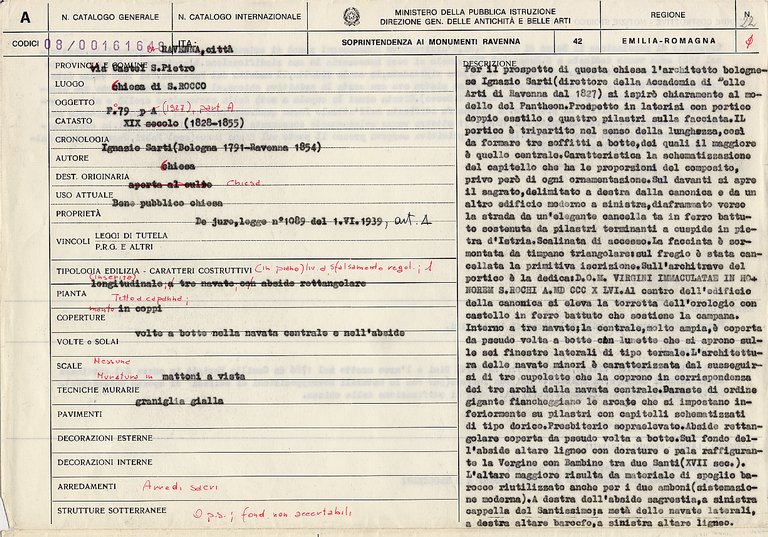 A
N. CATALOGO GENERALE
N. CATALOGO INTERNAZIONALE
MINISTERO DELLA PUBBLICA ISTRUZIONE
DIREZIONE GEN. DELLE ANTICHITÀ E BELLE ARTI
REGIONE
N.
22
CODICI
08/00161648
ITA:
SOPRINTENDENZA AI MONUMENTI RAVENNA
42
EMILIA-ROMAGNA
RAVENNA,città
PROVINCIA E COMUNE
via Castel S.Pietro
LUOGO
chiesa di S.ROCCO
OGGETTO
F.79 p A (1927), part. A
CATASTO
XIX secolo (1828-1855)
CRONOLOGIA
Ignazio Sarti(Bologna 1791-Ravenna 1854)
AUTORE
chiesa
DEST. ORIGINARIA
aperta al culto Chiesa
USO ATTUALE
Bene pubblico chiesa
PROPRIETÀ
De jure,legge n°1089 del 1.VI.1939, art. 1
VINCOLI
LEGGI DI TUTELA
P.R.G. E ALTRI
TIPOLOGIA EDILIZIA - CARATTERI COSTRUTTIVI
longitudinale, a tre navate, con abside rettangolare
PIANTA
Tetto a capanna;
in coppi
COPERTURE
volte a botte nella navata centrale e nell'abside
VOLTE o SOLAI
SCALE
Nessuna
Muratura in mattoni a vista
TECNICHE MURARIE
graniglia gialla
PAVIMENTI
DECORAZIONI ESTERNE
DECORAZIONI INTERNE
ARREDAMENTI
Arredi sacri
STRUTTURE SOTTERRANEE
O p.s.; fond. non accertabili
DESCRIZIONE
Per il prospetto di questa chiesa l'architetto bolognese
se Ignazio Sarti(direttore della Accademia di "elle
Arti di Ravenna dal 1827) si ispirò chiaramente al mo-
dello del Pantheon.Prospetto in laterizi con portico
doppio esastilo e quattro pilastri sulla facciata.IL
portico è tripartito nel senso della lunghezza,così
da formare tre soffitti a botte,dei quali il maggiore
è quello centrale.Caratteristica la schematizzazione
del capitello che ha le proporzioni del composito,
privo però di ogni ornamentazione.Sul davanti si apre
il sagrato,delimitato a destra dalla canonica e da un
altro edificio moderno a sinistra,diaframmato verso
la strada da un'elegante cancella ta in ferro battu-
to sostenuta da pilastri terminanti a cuspide in pie-
tra d'Istria.Scalinata di accesso.La facciata è sor-
montata da timpano triangolare:sul fregio è stata can-
cellata la primitiva iscrizione.Sull'architrave del
portico è la dedica:D.O.M. VIRGINI IMMACULATAE IN HO-
NOREM S.ROCHI A.MD CCC X LVI.Al centro dell'edificio
della canonica si eleva la torretta dell'orologio con
castello in ferro battuto che sostiene la campana.
Interno a tre navate;la centrale,molto ampia,è coperta
da pseudo volta a botte con lunette che si aprono sul-
le sei finestre laterali di tipo termale.L'architettu-
ra delle navate minori è caratterizzata dal susseguir-
si di tre cupolette che la coprono in corrispondenza
dei tre archi della navata centrale.Paraste di ordine
gigante fiancheggiano le arcate che si impostano in-
feriormente su pilastri con capitelli schematizzati
di tipo dorico.Presbiterio sopraelevato.Abside rettan-
golare coperta da pseudo volta a botte.Sul fondo del-
l'abside altare ligneo con dorature e pala raffiguran-
te la Vergine con Bambino tra due Santi(XVII sec.).
L'altare maggiore risulta da materiale di spoglio ba-
rocco riutilizzato anche per i due amboni(sistemazio-
ne moderna).A destra dell'abside sagrestia,a sinistra
cappella del Santissimo;a metà delle navate laterali,
a destra altare barocco,a sinistra altare ligneo.